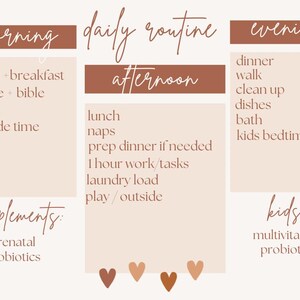 daily routine
+breakfast
+ bible
time
afternoon
lunch
naps
prep dinner if needed
1 hour work/tasks
laundry load
play / outside
dinner
walk
clean up
dishes
bath
kids bedtim
kids
multivita
probiot